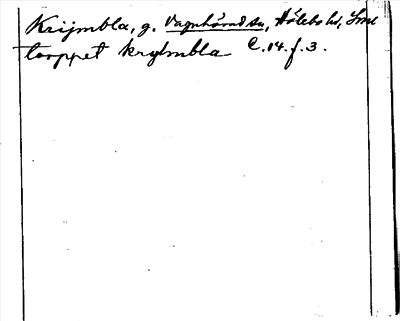 Krijmbla, g. Vagnhärad sn, Hölebo hd, Sml
torppet krylmbla C. 14. f. 3.